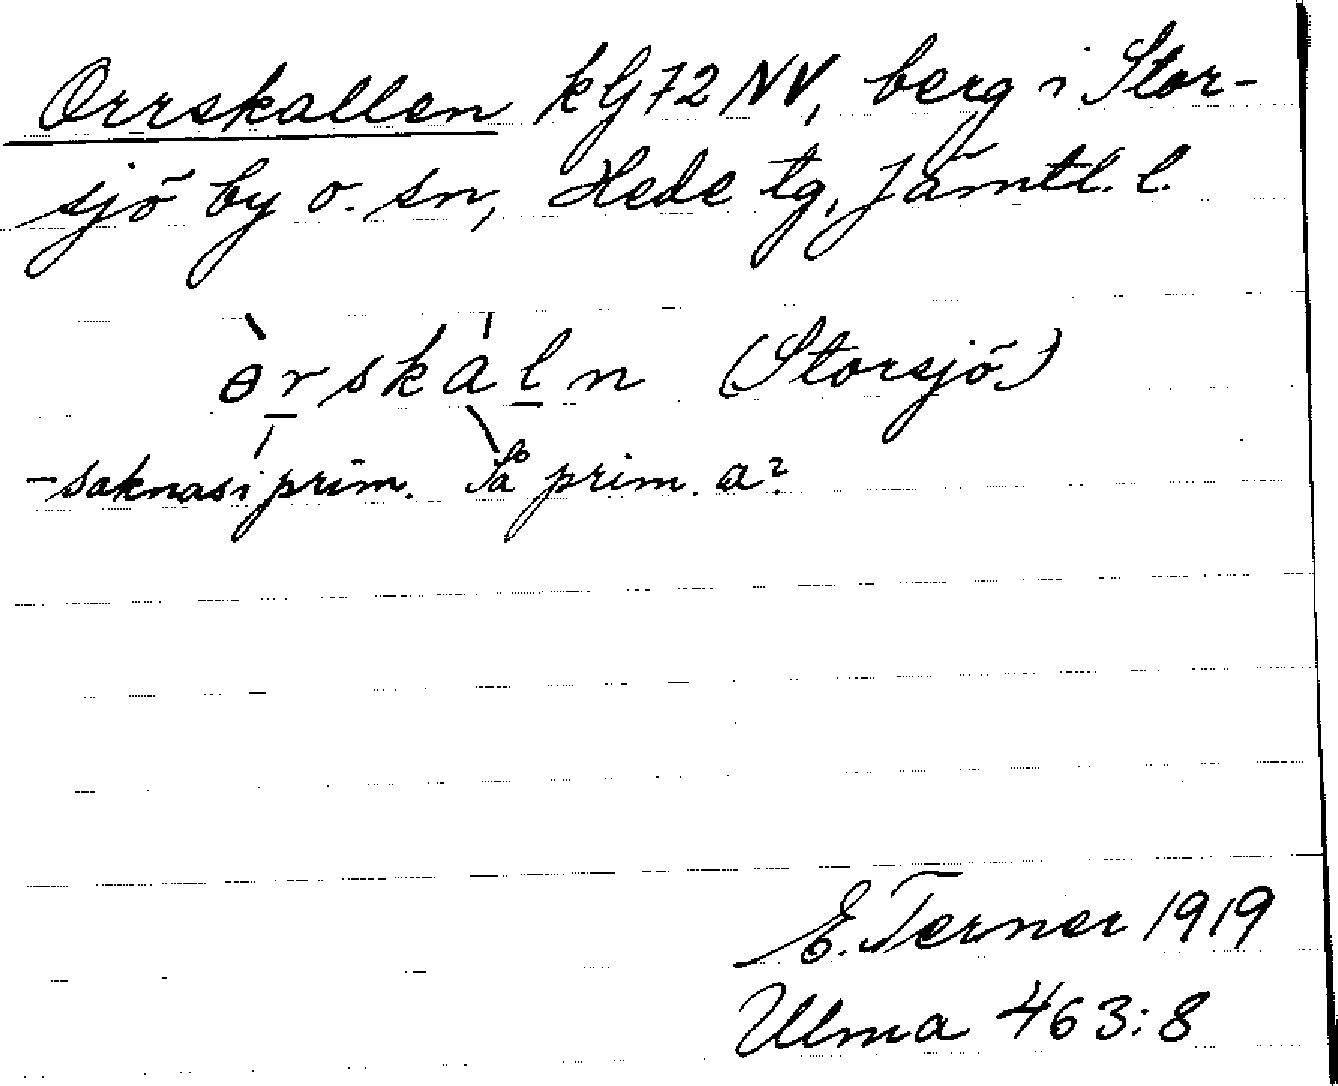 Orrskallen kG72NV, berg i Stor-
sjö by o. sn, Hede tg, Jämtl. l.
ɵ̀r̠skál̠n (Storsjö)
- saknas i prim. Så prim. a?
E. Terner 1919
Ulma 463:8